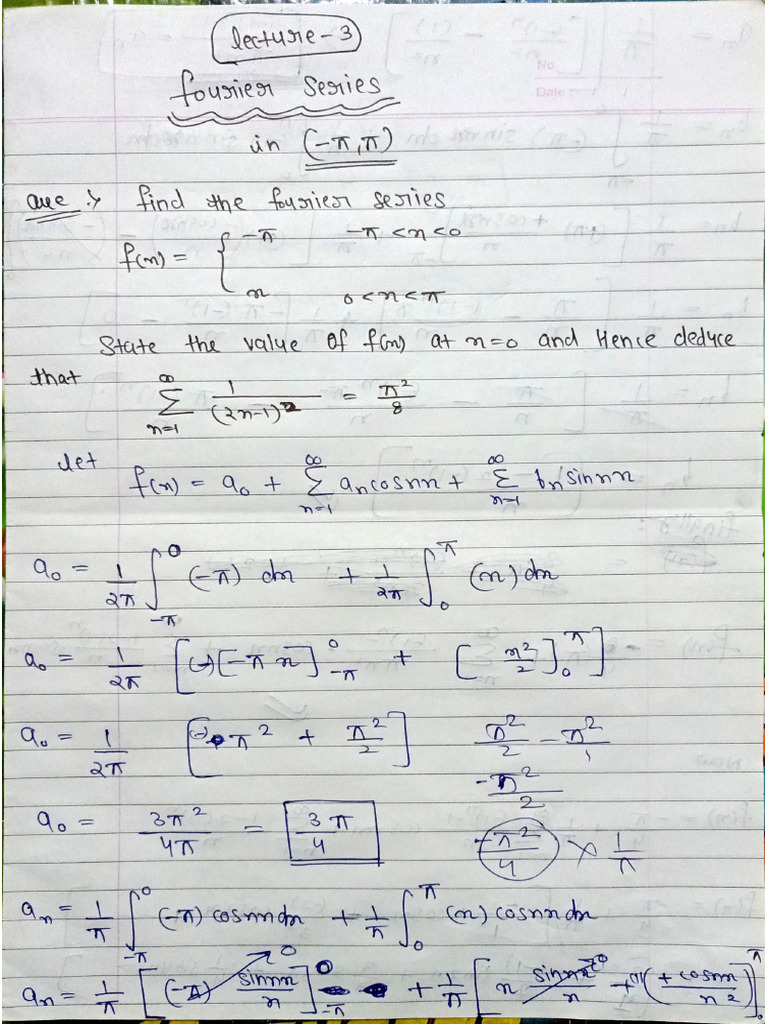 lecture-3
fourier series
in (-π,π)
que :→ find the fourier series
f(x) = { -π   -π < x < 0
x   0 < x < π
State the value of f(x) at x=0 and Hence deduce
that ∑_{n=1}^{∞} 1/(2n-1)^2 = π^2/8
let f(x) = a_0 + ∑_{n=1}^{∞} a_n cosnx + ∑_{n=1}^{∞} b_n sinnx
a_0 = 1/2π ∫_{-π}^{0} (-π) dx + 1/2π ∫_{0}^{π} (x) dx
a_0 = 1/2π [(-)[-πx]_{-π}^{0} + [x^2/2]_{0}^{π}]
a_0 = 1/2π [(-)π^2 + π^2/2]   π^2/2 - π^2/1
-π^2/2
a_0 = 3π^2/4π = 3π/4   -π^2/4 × 1/π
a_n = 1/π ∫_{-π}^{0} (-π) cosnx dx + 1/π ∫_{0}^{π} (x) cosnx dx
a_n = 1/π [(-π) sinnx/n]_{-π}^{0} + 1/π [x sinnx/n + (1)(+cosnx/n^2)]_{0}^{π}